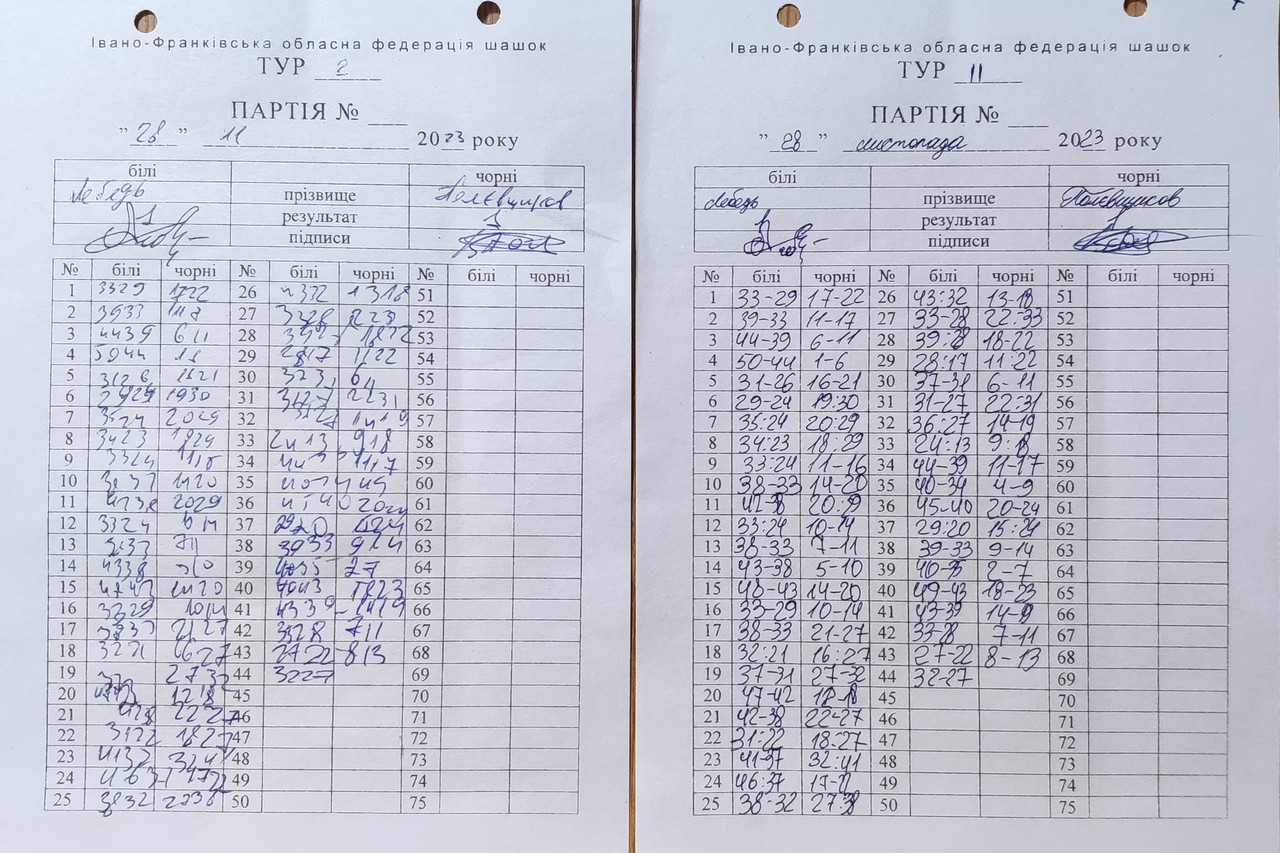 Івано-Франківська обласна федерація шашок
ТУР 2
ПАРТІЯ №
" 28 " 11 2023 року
білі чорні
Лебедь прізвище Полєвщиков
1 результат 1
підписи
№ білі чорні № білі чорні № білі чорні
1 3329 1722 26 4332 1318 51
2 3933 1117 27 3328 52
3 4439 611 28 1822 53
4 5044 16 29 2817 1122 54
5 3126 1621 30 55
6 2924 1930 31 3127 2231 56
7 3524 2029 32 57
8 3423 1829 33 2413 918 58
9 3324 1116 34 1117 59
10 3833 1420 35 60
11 4238 2029 36 4540 2024 61
12 3324 37 2920 62
13 3833 711 38 3933 914 63
14 4338 510 39 4035 27 64
15 4843 1420 40 4943 1823 65
16 3329 1014 41 4339 1419 66
17 3833 2127 42 3328 711 67
18 3221 1627 43 2722 813 68
19 2732 44 3227 69
20 1218 45 70
21 4238 2227 46 71
22 3122 1827 47 72
23 4137 3241 48 73
24 49 74
25 3832 2738 50 75
Івано-Франківська обласна федерація шашок
ТУР II
ПАРТІЯ №
" 28 " листопада 2023 року
білі чорні
Лебедь прізвище Полєвщиков
1 результат 1
підписи
№ білі чорні № білі чорні № білі чорні
1 33-29 17-22 26 43:32 13-18 51
2 39-33 11-17 27 33-28 22:33 52
3 44-39 6-11 28 39:28 18-22 53
4 50-44 1-6 29 28:17 11:22 54
5 31-26 16-21 30 37-31 6-11 55
6 29-24 19:30 31 31-27 22:31 56
7 35:24 20:29 32 36:27 14-19 57
8 34:23 18:29 33 24:13 9:18 58
9 33:24 11-16 34 44-39 11-17 59
10 38-33 14-20 35 40-34 4-9 60
11 42-38 20:29 36 45-40 20-24 61
12 33:24 10-14 37 29:20 15:24 62
13 38-33 7-11 38 39-33 9-14 63
14 43-38 5-10 39 40-35 2-7 64
15 48-43 14-20 40 49-43 18-23 65
16 33-29 10-14 41 43-39 14-19 66
17 38-33 21-27 42 33-28 7-11 67
18 32:21 16:27 43 27-22 8-13 68
19 37-31 27-32 44 32-27 69
20 47-42 12-18 45 70
21 42-38 22-27 46 71
22 31:22 18:27 47 72
23 41-37 32:41 48 73
24 46:37 17-22 49 74
25 38-32 27:38 50 75